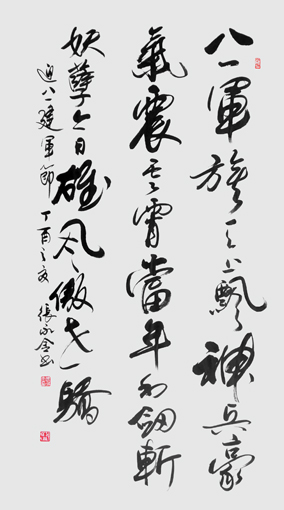 八一軍旗天上飄神兵豪
氣震云霄當年利劍斬
妖孽今日雄風傲世驕
迎八一建軍節丁酉之夏張永